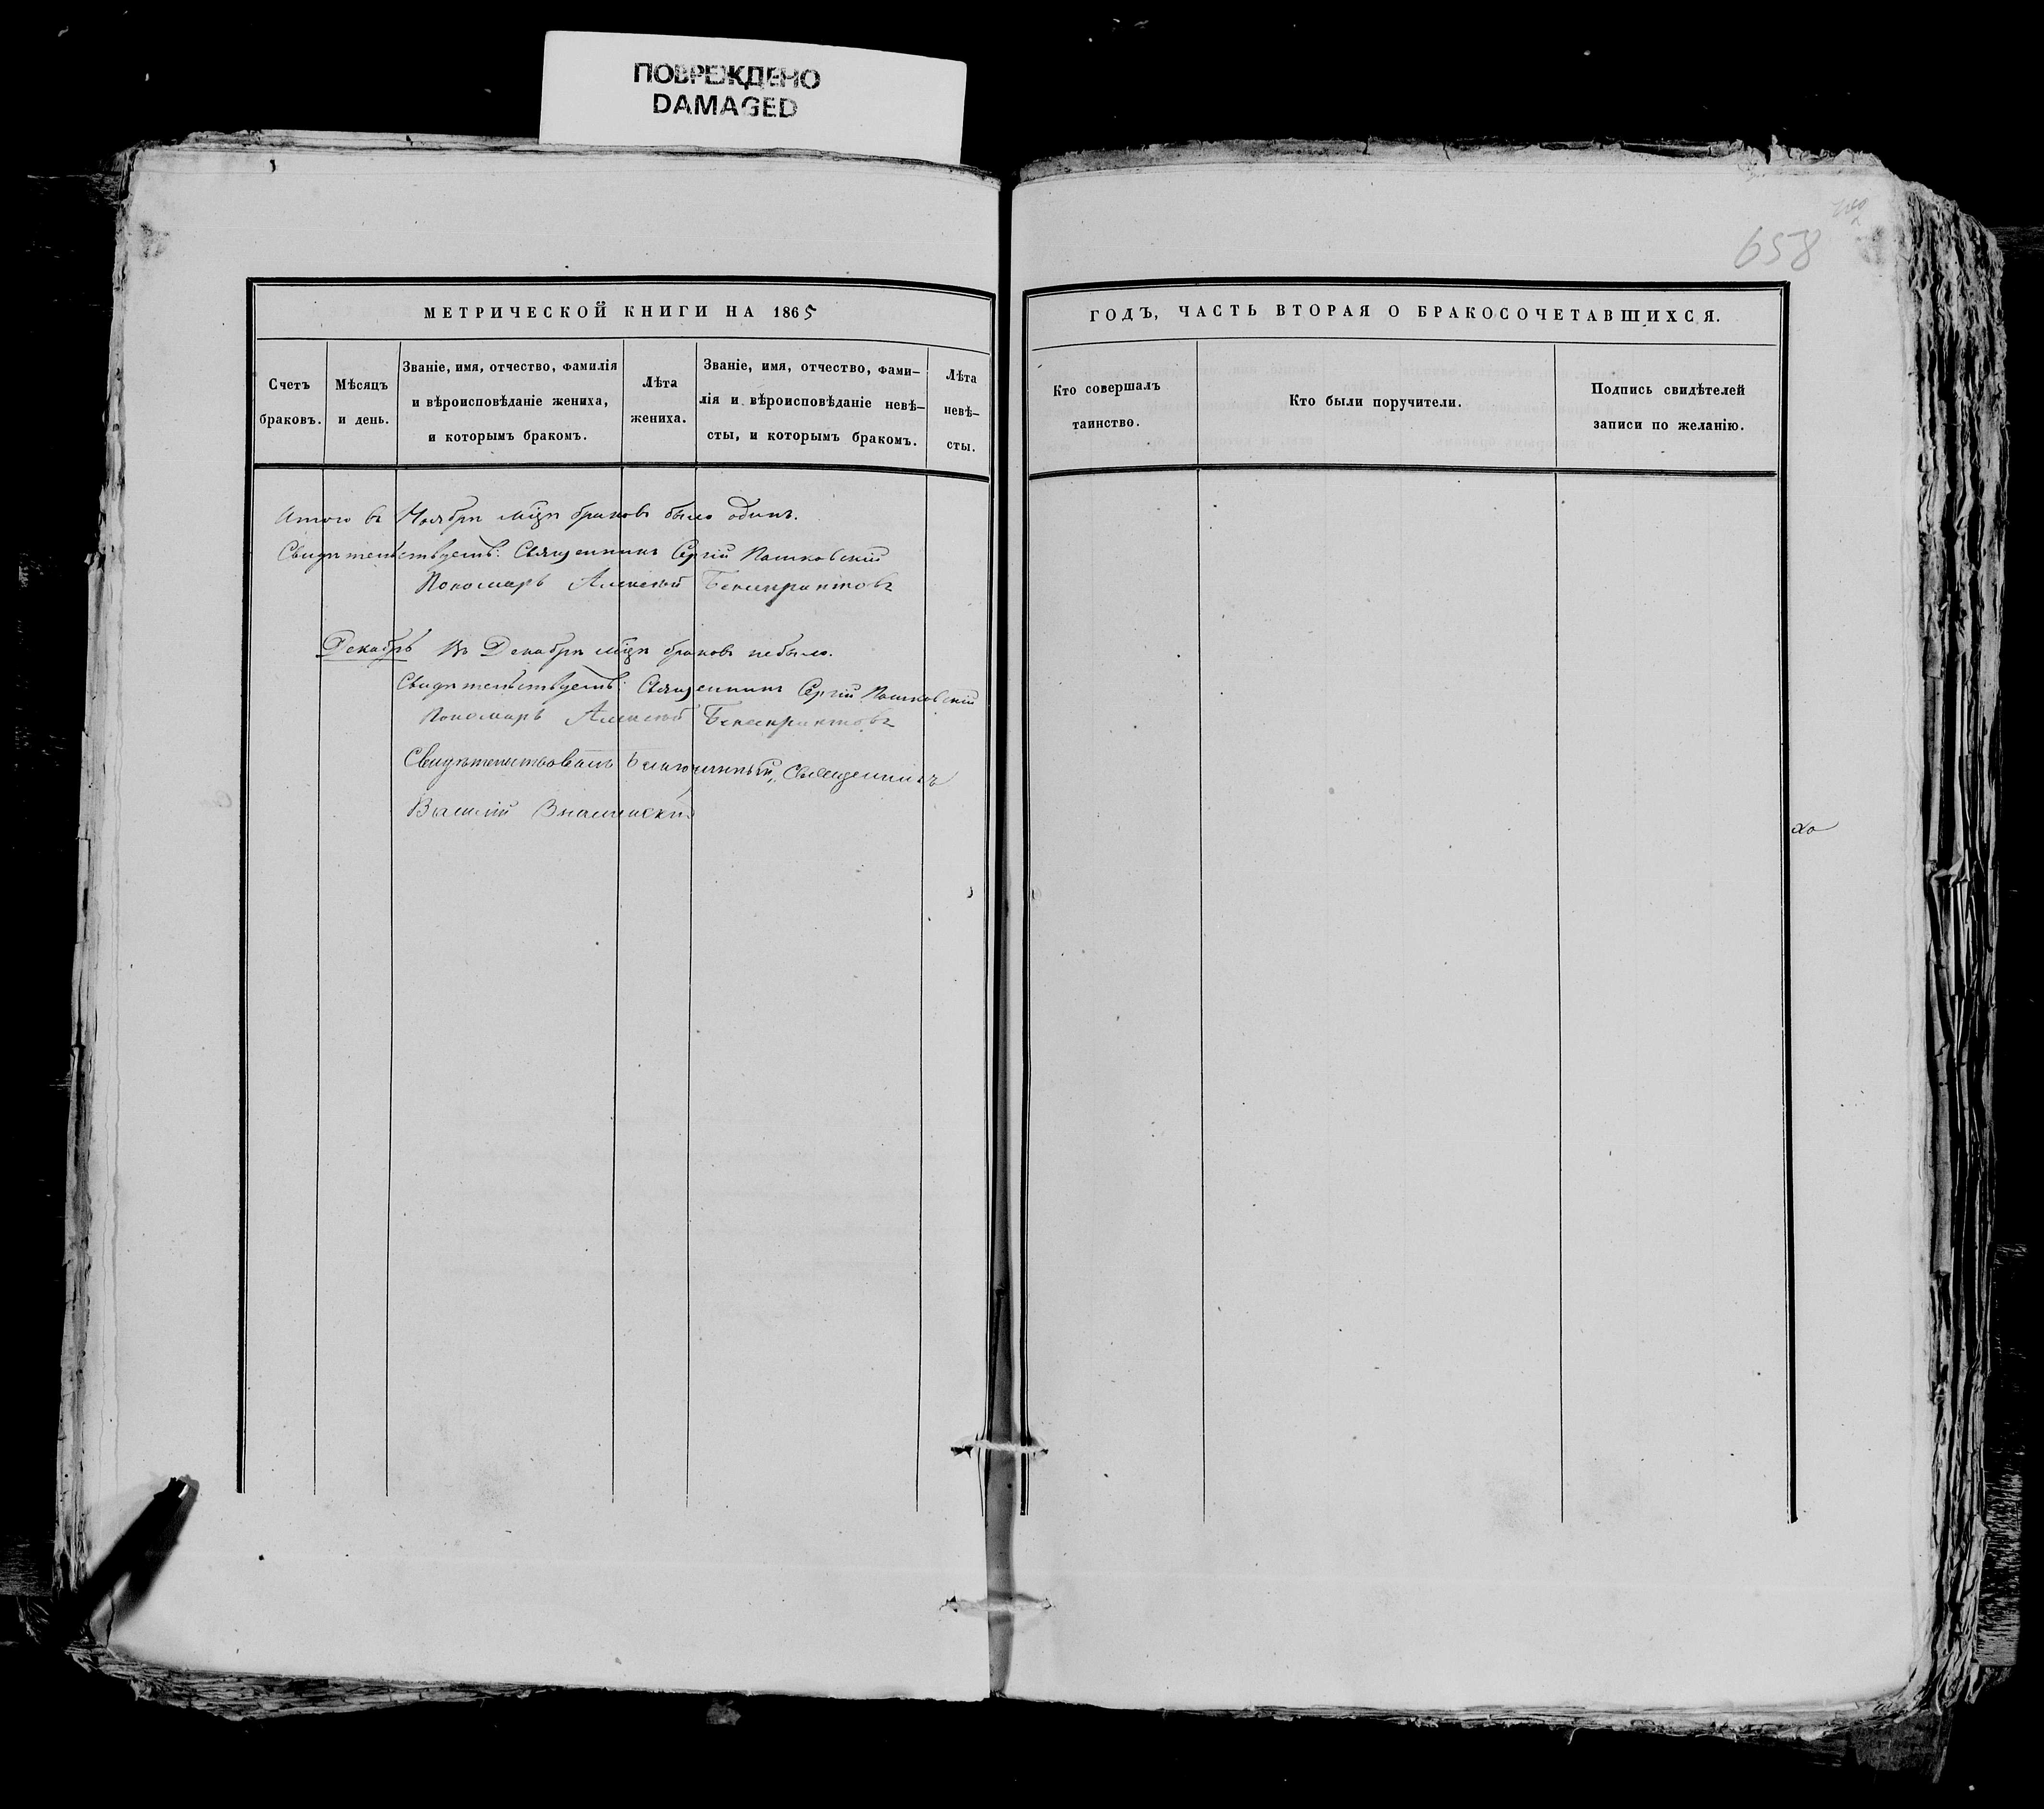 ПОВРЕЖДЕНО
DAMAGED
658
МЕТРИЧЕСКОЙ КНИГИ НА 1865
Счетъ браковъ.
Мѣсяцъ и день.
Званіе, имя, отчество, фамилія
и вѣроисповѣданіе жениха,
и которымъ бракомъ.
Лѣта жениха.
Званіе, имя, отчество, фами-
лія и вѣроисповѣданіе невѣ-
сты, и которымъ бракомъ.
Лѣта
невѣ-
сты.
Итого въ Ноябрѣ мцѣ браковъ было одинъ.
Свидѣтельствуетъ: Священникъ Сергій Пашковскій
Пономарь Алексѣй
Декабрь Въ Декабрѣ мцѣ браковъ небыло.
Свидѣтельствуетъ: Священникъ Сергій Пашковскій
Пономарь Алексѣй
Свидѣтельствовалъ Благочинный, Священникъ
Василій Знаменскій
ГОДЪ, ЧАСТЬ ВТОРАЯ О БРАКОСОЧЕТАВШИХСЯ.
Кто совершалъ
таинство.
Кто были поручители.
Подпись свидѣтелей
записи по желанію.